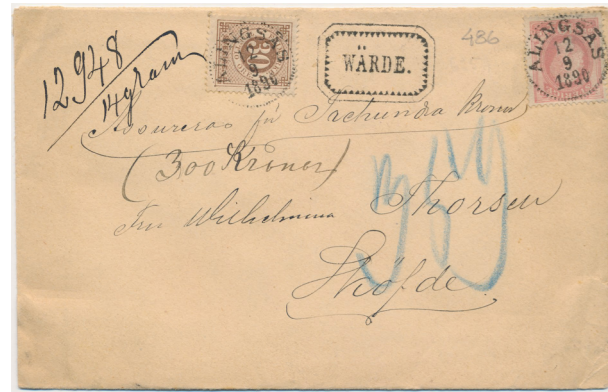 12948
14 gram
ALINGSÅS
12
9
1890
30
WÄRDE.
486
ALINGSÅS
12
9
1890
Assureras för Trehundra Kronor
(300 Kronor)
Fru Wilhelmina Thorsen
Sköfde.